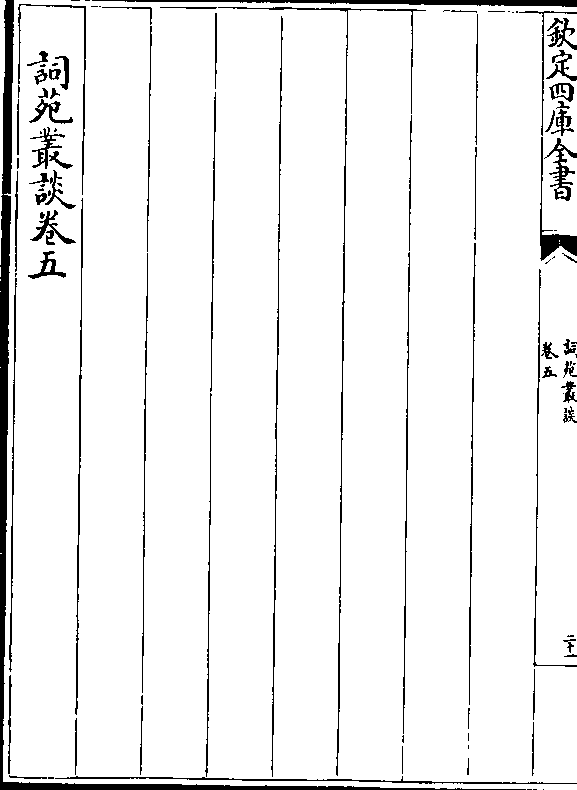 欽定四庫全書
詞苑叢談
卷五
二十一
詞苑叢談卷五